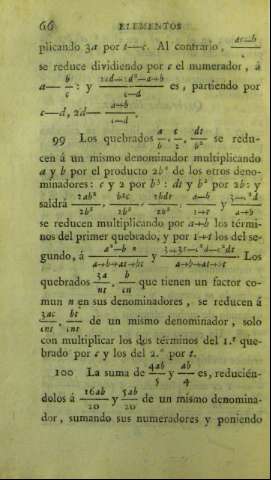 66 ELEMENTOS
plicando 3a por t—c. Al contrario, ac—b
se reduce dividiendo por c el numerador, á
a— b/c : y 2cd—2d²—a+b / c—d es, partiendo por
c—d, 2d— a+b / c—d.
99 Los quebrados a/b, c/2, dt/b² se redu-
cen á un mismo denominador multiplicando
a y b por el producto 2b² de los otros deno-
minadores: c y 2 por b³ : dt y b² por 2b: y
saldrá 2ab²/2b³, b³c/2b³, 2bdt/2b³. a—b/1+t y 3—c²d/a+b
se reducen multiplicando por a+b los térmi-
nos del primer quebrado, y por 1+t los del se-
gundo, á a²—b² / a+b+at+bt y 3+3t—c²d—c²dt / a+b+at+bt. Los
quebrados 3a/nt, b/cn que tienen un factor co-
mun n en sus denominadores, se reducen á
3ac/cnt, bt/cnt de un mismo denominador, solo
con multiplicar los dos términos del 1.º que-
brado por c y los del 2.º por t.
100 La suma de 4ab/5 y ab/4 es, reducién-
dolos á 16ab/20 y 5ab/20 de un mismo denomina-
dor, sumando sus numeradores y poniendo